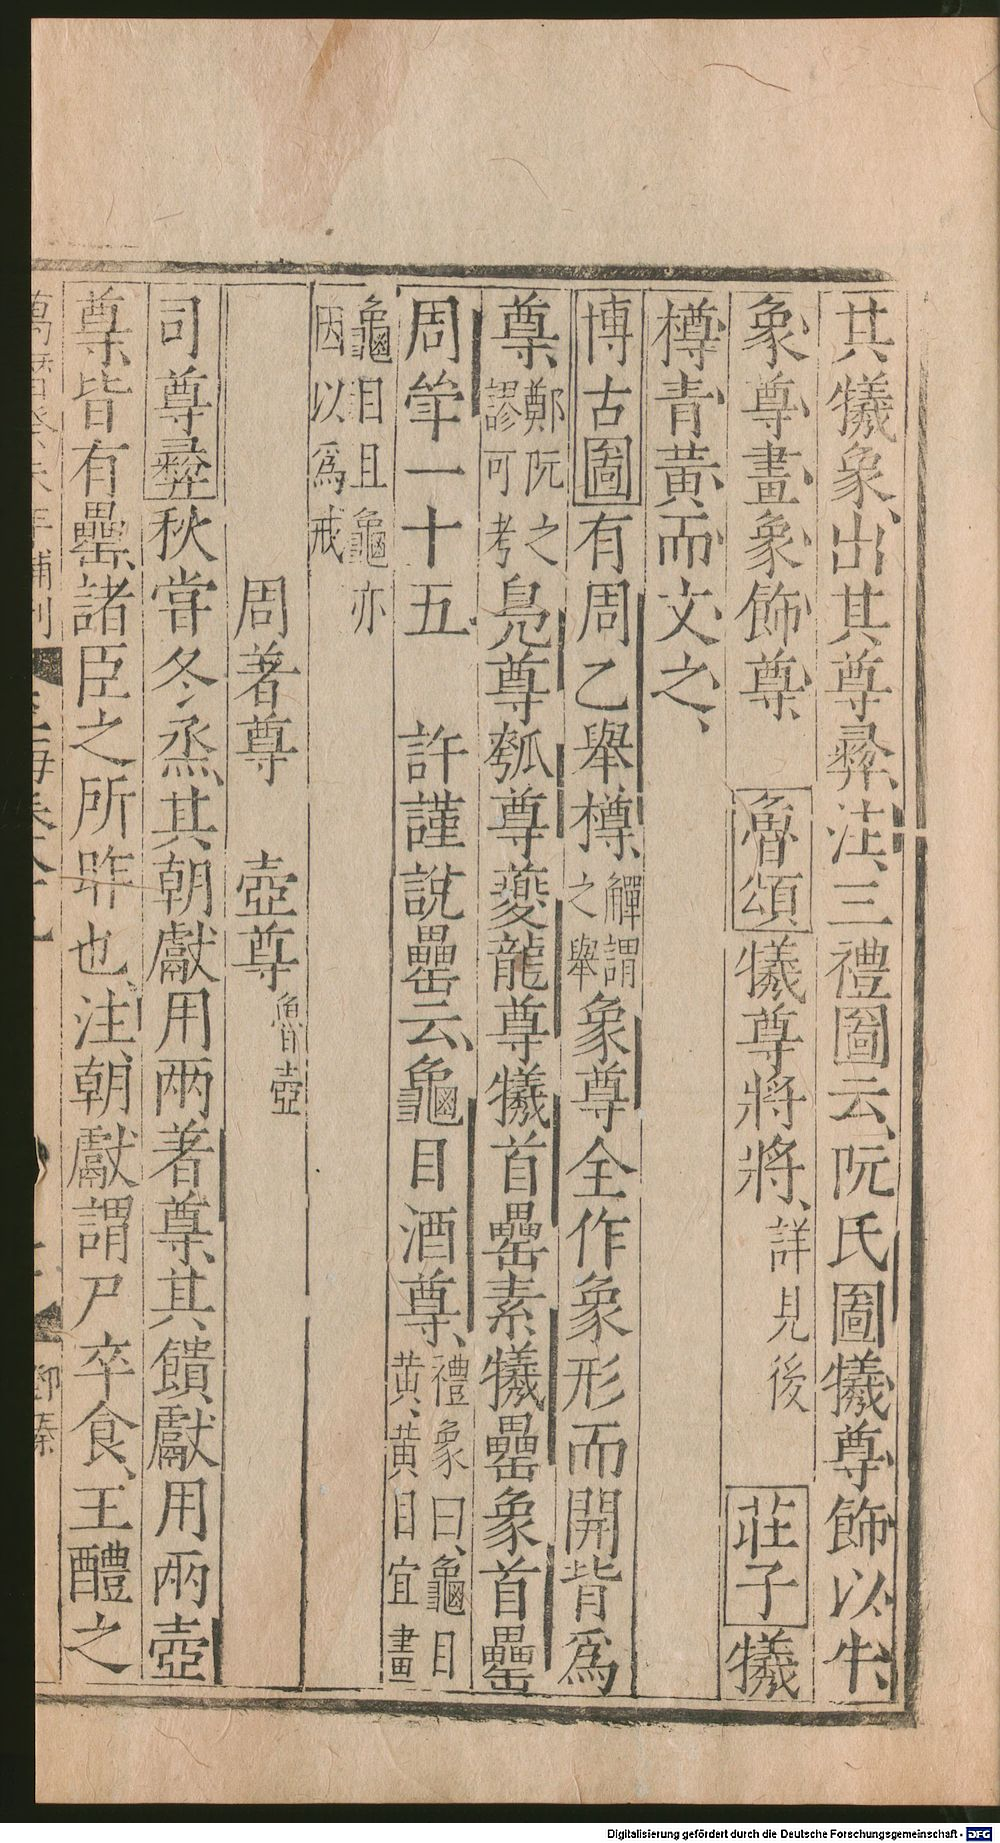 共犧象、出其尊彛、注、三禮圖云、阮氏圖犧尊、飾以牛、
象尊、畫象飾尊、 魯頌犧尊將將、詳見後 莊子犧
樽青黃而文之、
博古圖有周乙舉樽、觶謂之舉象尊全作象形而開背爲
尊、鄭阮之謬可考鳧尊瓠尊夔龍尊犧首罍素犧罍象首罍
周斝一十五 許謹說罍云、龜目酒尊、禮象曰、龜目黃、黃目宜畫
龜目且龜亦因以爲戒
周著尊 壺尊魯壺
司尊彛秋嘗冬烝、其朝獻用兩著尊、其饋獻用兩壺
尊、皆有罍、諸臣之所昨也、注、朝獻謂尸卒食、王醴之
Digitalisierung gefördert durch die Deutsche Forschungsgemeinschaft - DFG